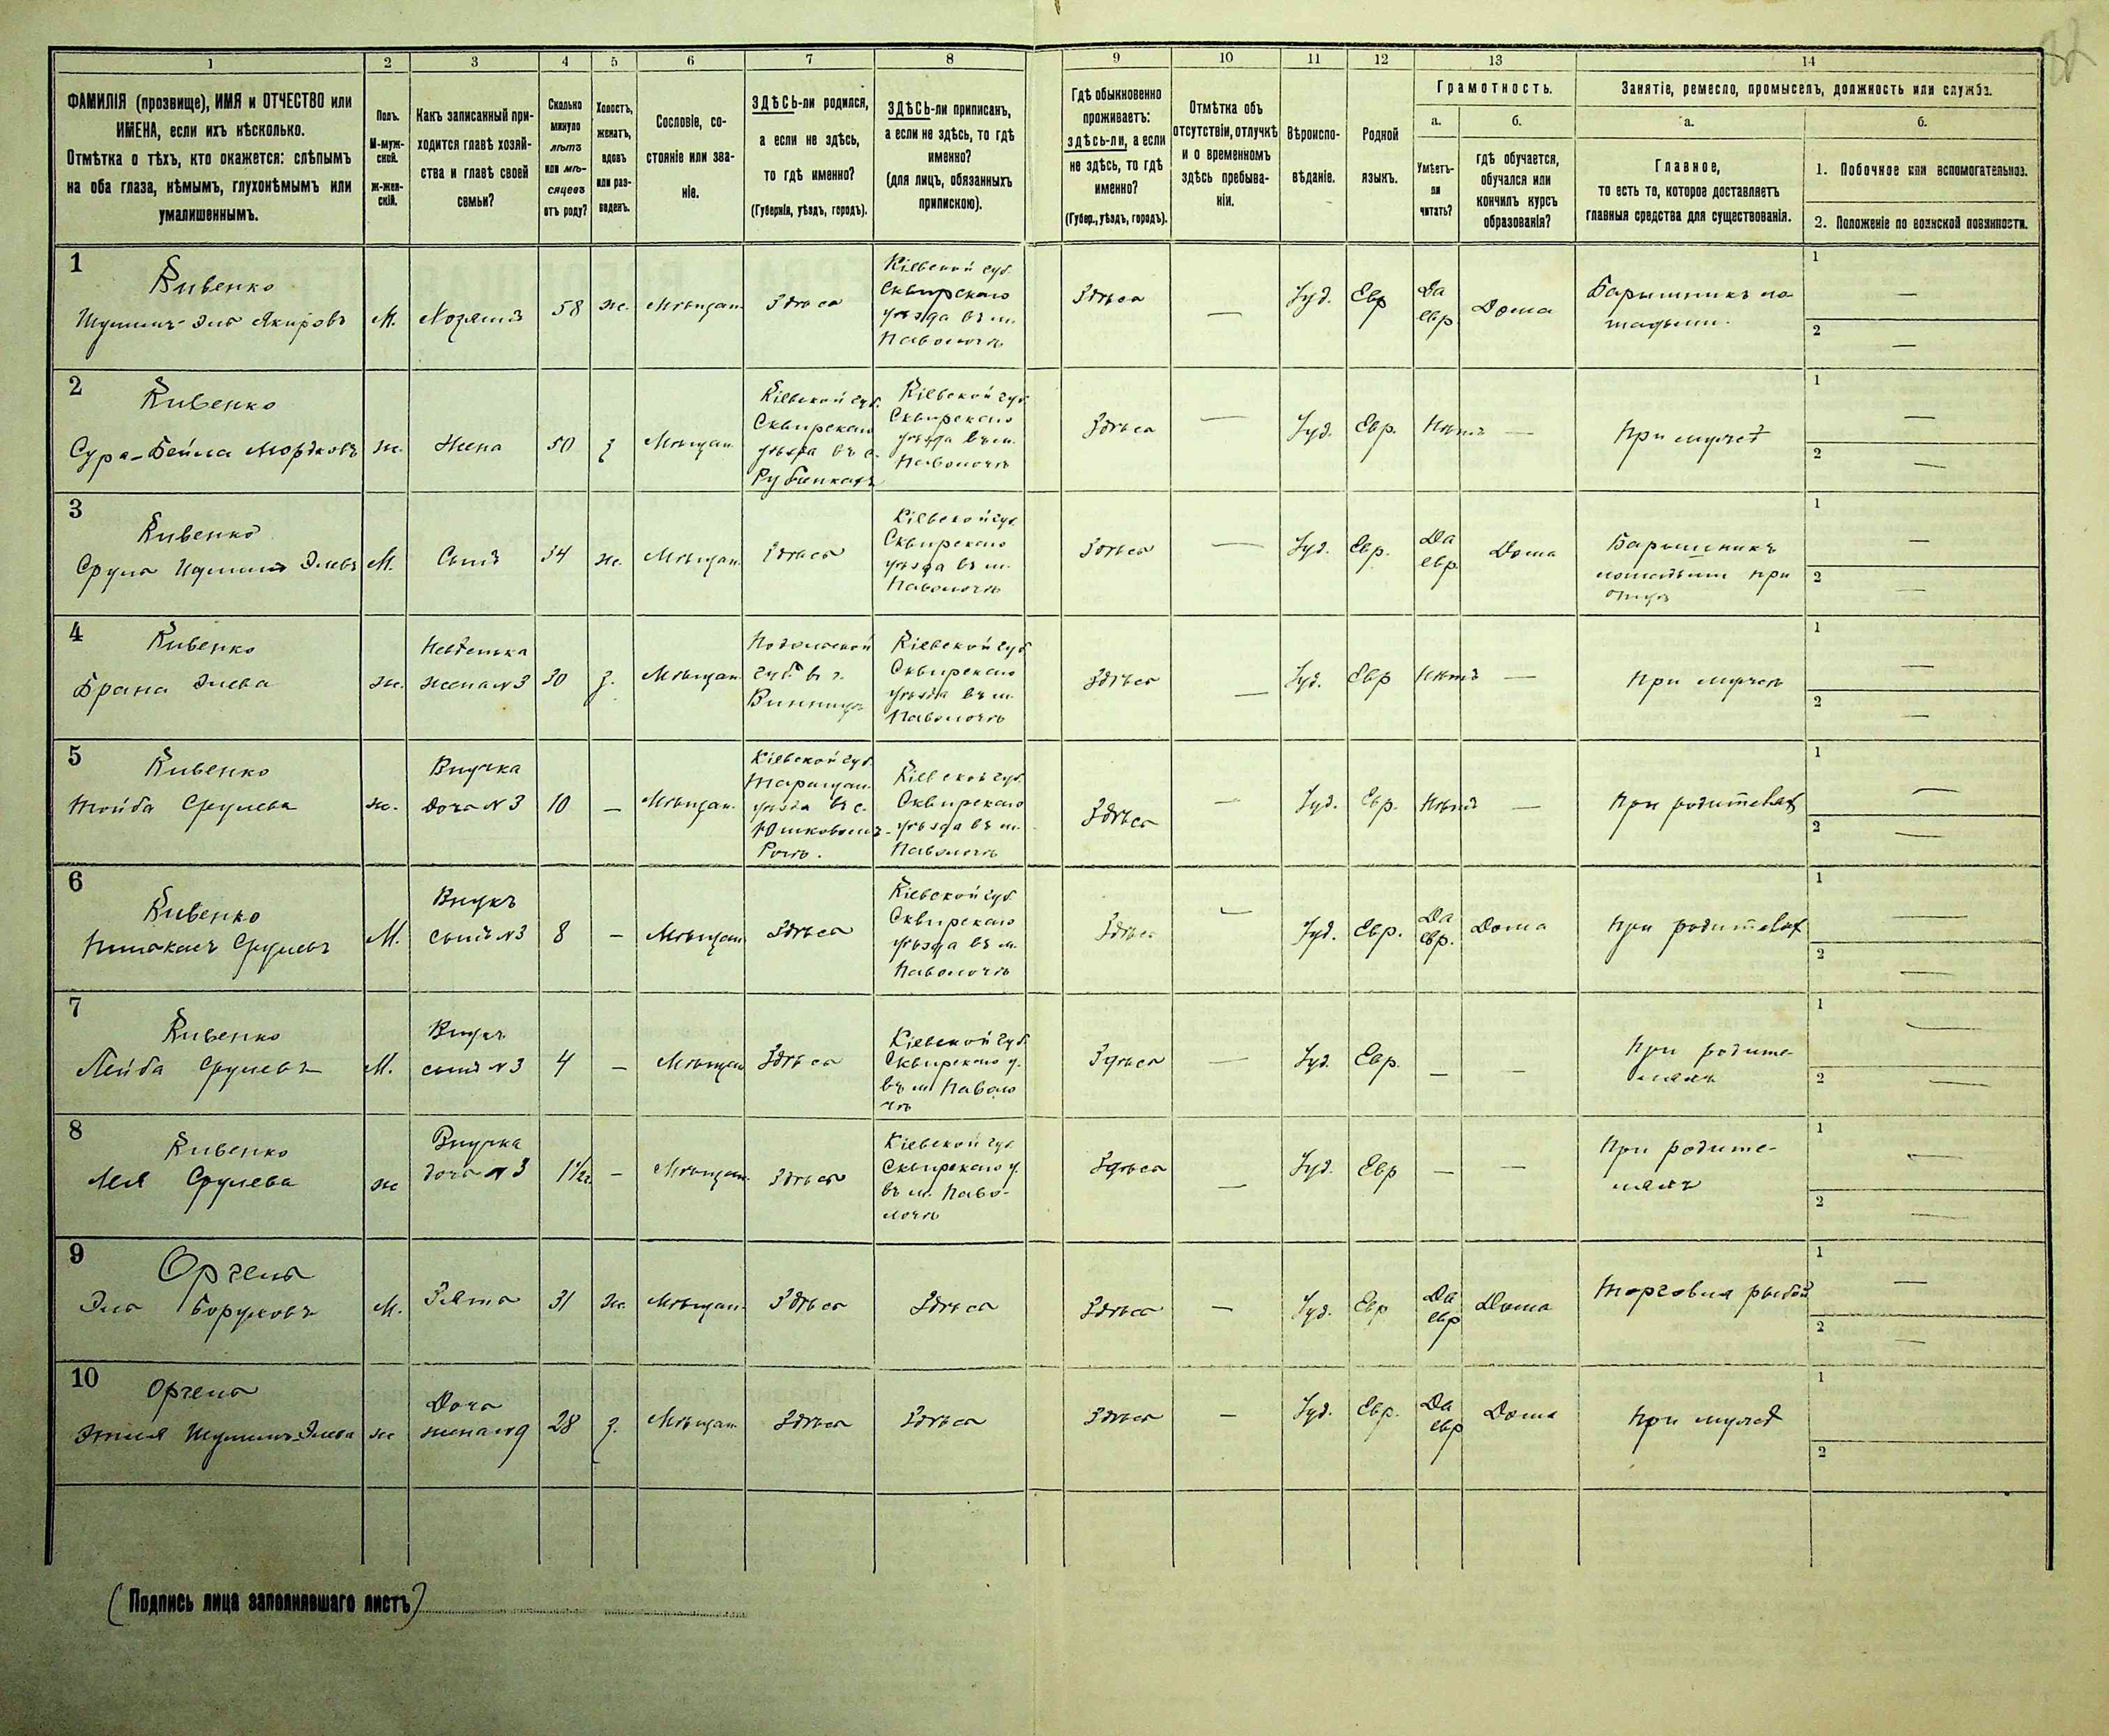 1 2 3 4 5 6 7 8 9 10 11 12 13 14
ФАМИЛІЯ (прозвище), ИМЯ и ОТЧЕСТВО или
ИМЕНА, если ихъ нѣсколько.
Отмѣтка о тѣхъ, кто окажется: слѣпымъ
на оба глаза, нѣмымъ, глухонѣмымъ или
умалишеннымъ.
Полъ.
М-муж-
ской.
Ж-жен-
скій.
Какъ записанный при-
ходится главѣ хозяй-
ства и главѣ своей
семьи?
Сколько
минуло
лѣтъ
или мѣ-
сяцевъ
отъ роду?
Холостъ,
женатъ,
вдовъ
или раз-
веденъ.
Сословіе, со-
стояніе или зва-
ніе.
ЗДѢСЬ-ли родился,
а если не здѣсь,
то гдѣ именно?
(Губернія, уѣздъ, городъ).
ЗДѢСЬ-ли приписанъ,
а если не здѣсь, то гдѣ
именно?
(для лицъ, обязанныхъ
припискою).
Гдѣ обыкновенно
проживаетъ:
здѣсь-ли, а если
не здѣсь, то гдѣ
именно?
(Губер., уѣздъ, городъ).
Отмѣтка объ
отсутствіи, отлучкѣ
и о временномъ
здѣсь пребыва-
ніи.
Вѣроиспо-
вѣданіе.
Родной
языкъ.
Грамотность.
а.
Умѣетъ-
ли
читать?
б.
гдѣ обучается,
обучался или
кончилъ курсъ
образованія?
Занятіе, ремесло, промыселъ, должность или служба.
а.
Главное,
то есть то, которое доставляетъ
главныя средства для существованія.
б.
1. Побочное или вспомогательное.
2. Положеніе по воинской повинности.
1
Кивенко
Эль
М.
Хозяинъ
58
ж.
Мѣщан.
Здѣсь
Кіевской губ.
Сквирскаго
уѣзда въ м.
Паволочѣ
Здѣсь
—
Іуд.
Евр
Да
евр.
Дома
Барышникъ ло-
шадьми.
1 —
2 —
2
Кивенко
Сура-Бейла Мордковъ
ж.
Жена
50
з
Мѣщан.
Кіевской губ.
Сквирскаго
уѣзда въ с.
Рубинкахъ
Кіевской губ.
Сквирскаго
уѣзда въ м.
Паволочѣ
Здѣсь
—
Іуд.
Евр.
Нѣтъ
—
При мужѣ
1 —
2 —
3
Кивенко
Сруль Элевъ
М.
Сынъ
34
ж.
Мѣщан.
Здѣсь
Кіевской губ.
Сквирскаго
уѣзда въ м.
Паволочѣ
Здѣсь
—
Іуд.
Евр.
Да
евр.
Дома
Барышникъ
лошадьми при
отцѣ
1 —
2 —
4
Кивенко
Брана Элева
ж.
Невѣстка
жена №3
30
з.
Мѣщан.
Подольской
губ. въ г.
Винницѣ
Кіевской губ.
Сквирскаго
уѣзда въ м.
Паволочѣ
Здѣсь
—
Іуд.
Евр
Нѣтъ
—
При мужѣ
1 —
2 —
5
Кивенко
Тойба Срулева
ж.
Внучка
дочь №3
10
—
Мѣщан.
Кіевской губ.
Таращан.
уѣзда въ с.
Юшковомъ-
Рогѣ.
Кіевской губ.
Сквирскаго
уѣзда въ м.
Паволочѣ
Здѣсь
—
Іуд.
Евр.
Нѣтъ
—
При родителях
1 —
2 —
6
Кивенко
Срулевъ
М.
Внукъ
сынъ №3
8
—
Мѣщан.
Здѣсь
Кіевской губ.
Сквирскаго
уѣзда въ м.
Паволочѣ
Здѣсь
—
Іуд.
Евр.
Да
евр.
Дома
При родителях
1 —
2 —
7
Кивенко
Лейба Срулевъ
М.
Внукъ
сынъ №3
4
—
Мѣщан
Здѣсь
Кіевской губ.
Сквирскаго у.
въ м. Паволо
чѣ
Здѣсь
—
Іуд.
Евр.
—
—
При родите-
ляхъ
1 —
2 —
8
Кивенко
Лея Срулева
ж
Внучка
дочь №3
1½
—
Мѣщан.
Здѣсь
Кіевской губ.
Сквирскаго у.
въ м. Паво-
лочѣ
Здѣсь
—
Іуд.
Евр
—
—
При родите-
ляхъ
1 —
2 —
9
Оргель
Эль Боруховъ
М.
Зять
31
ж.
Мѣщан.
Здѣсь
Здѣсь
Здѣсь
—
Іуд.
Евр
Да
евр
Дома
Торговля рыбой
1 —
2 —
10
Оргель
Элева
ж
Дочь
жена №9
28
з.
Мѣщан.
Здѣсь
Здѣсь
Здѣсь
—
Іуд.
Евр.
Да
евр
Дома
При мужѣ
1
2
(Подпись лица заполнявшаго листъ)